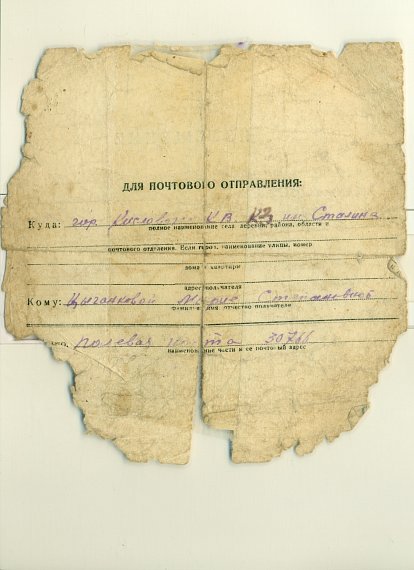 ДЛЯ ПОЧТОВОГО ОТПРАВЛЕНИЯ:
Куда: гор Кисловодск К.В. КЗ им Сталина
полное наименование села деревни, района, области и
почтового отделения. Если город, наименование улицы, номер
дома и квартиры
адрес получателя
Кому: Цыганковой Марие Степановной
фамилия имя отчество получателя
Полевая почта 30766
наименование части и ее почтовый адрес